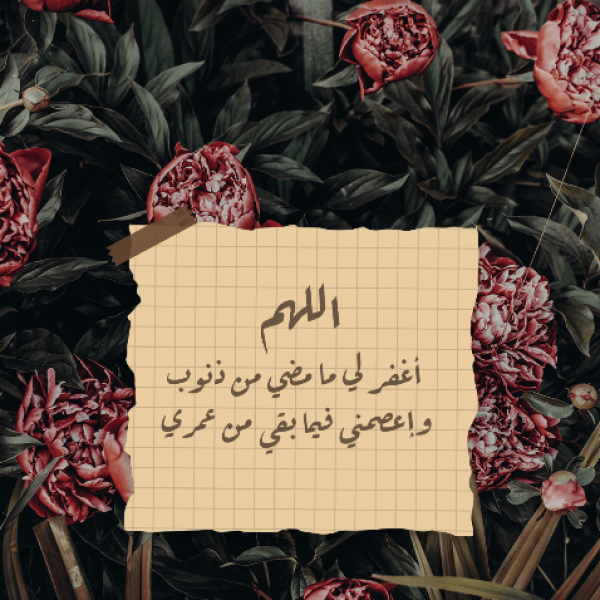 اللهم
أغفر لي ما مضي من ذنوب
وإعصمني فيما بقي من عمري